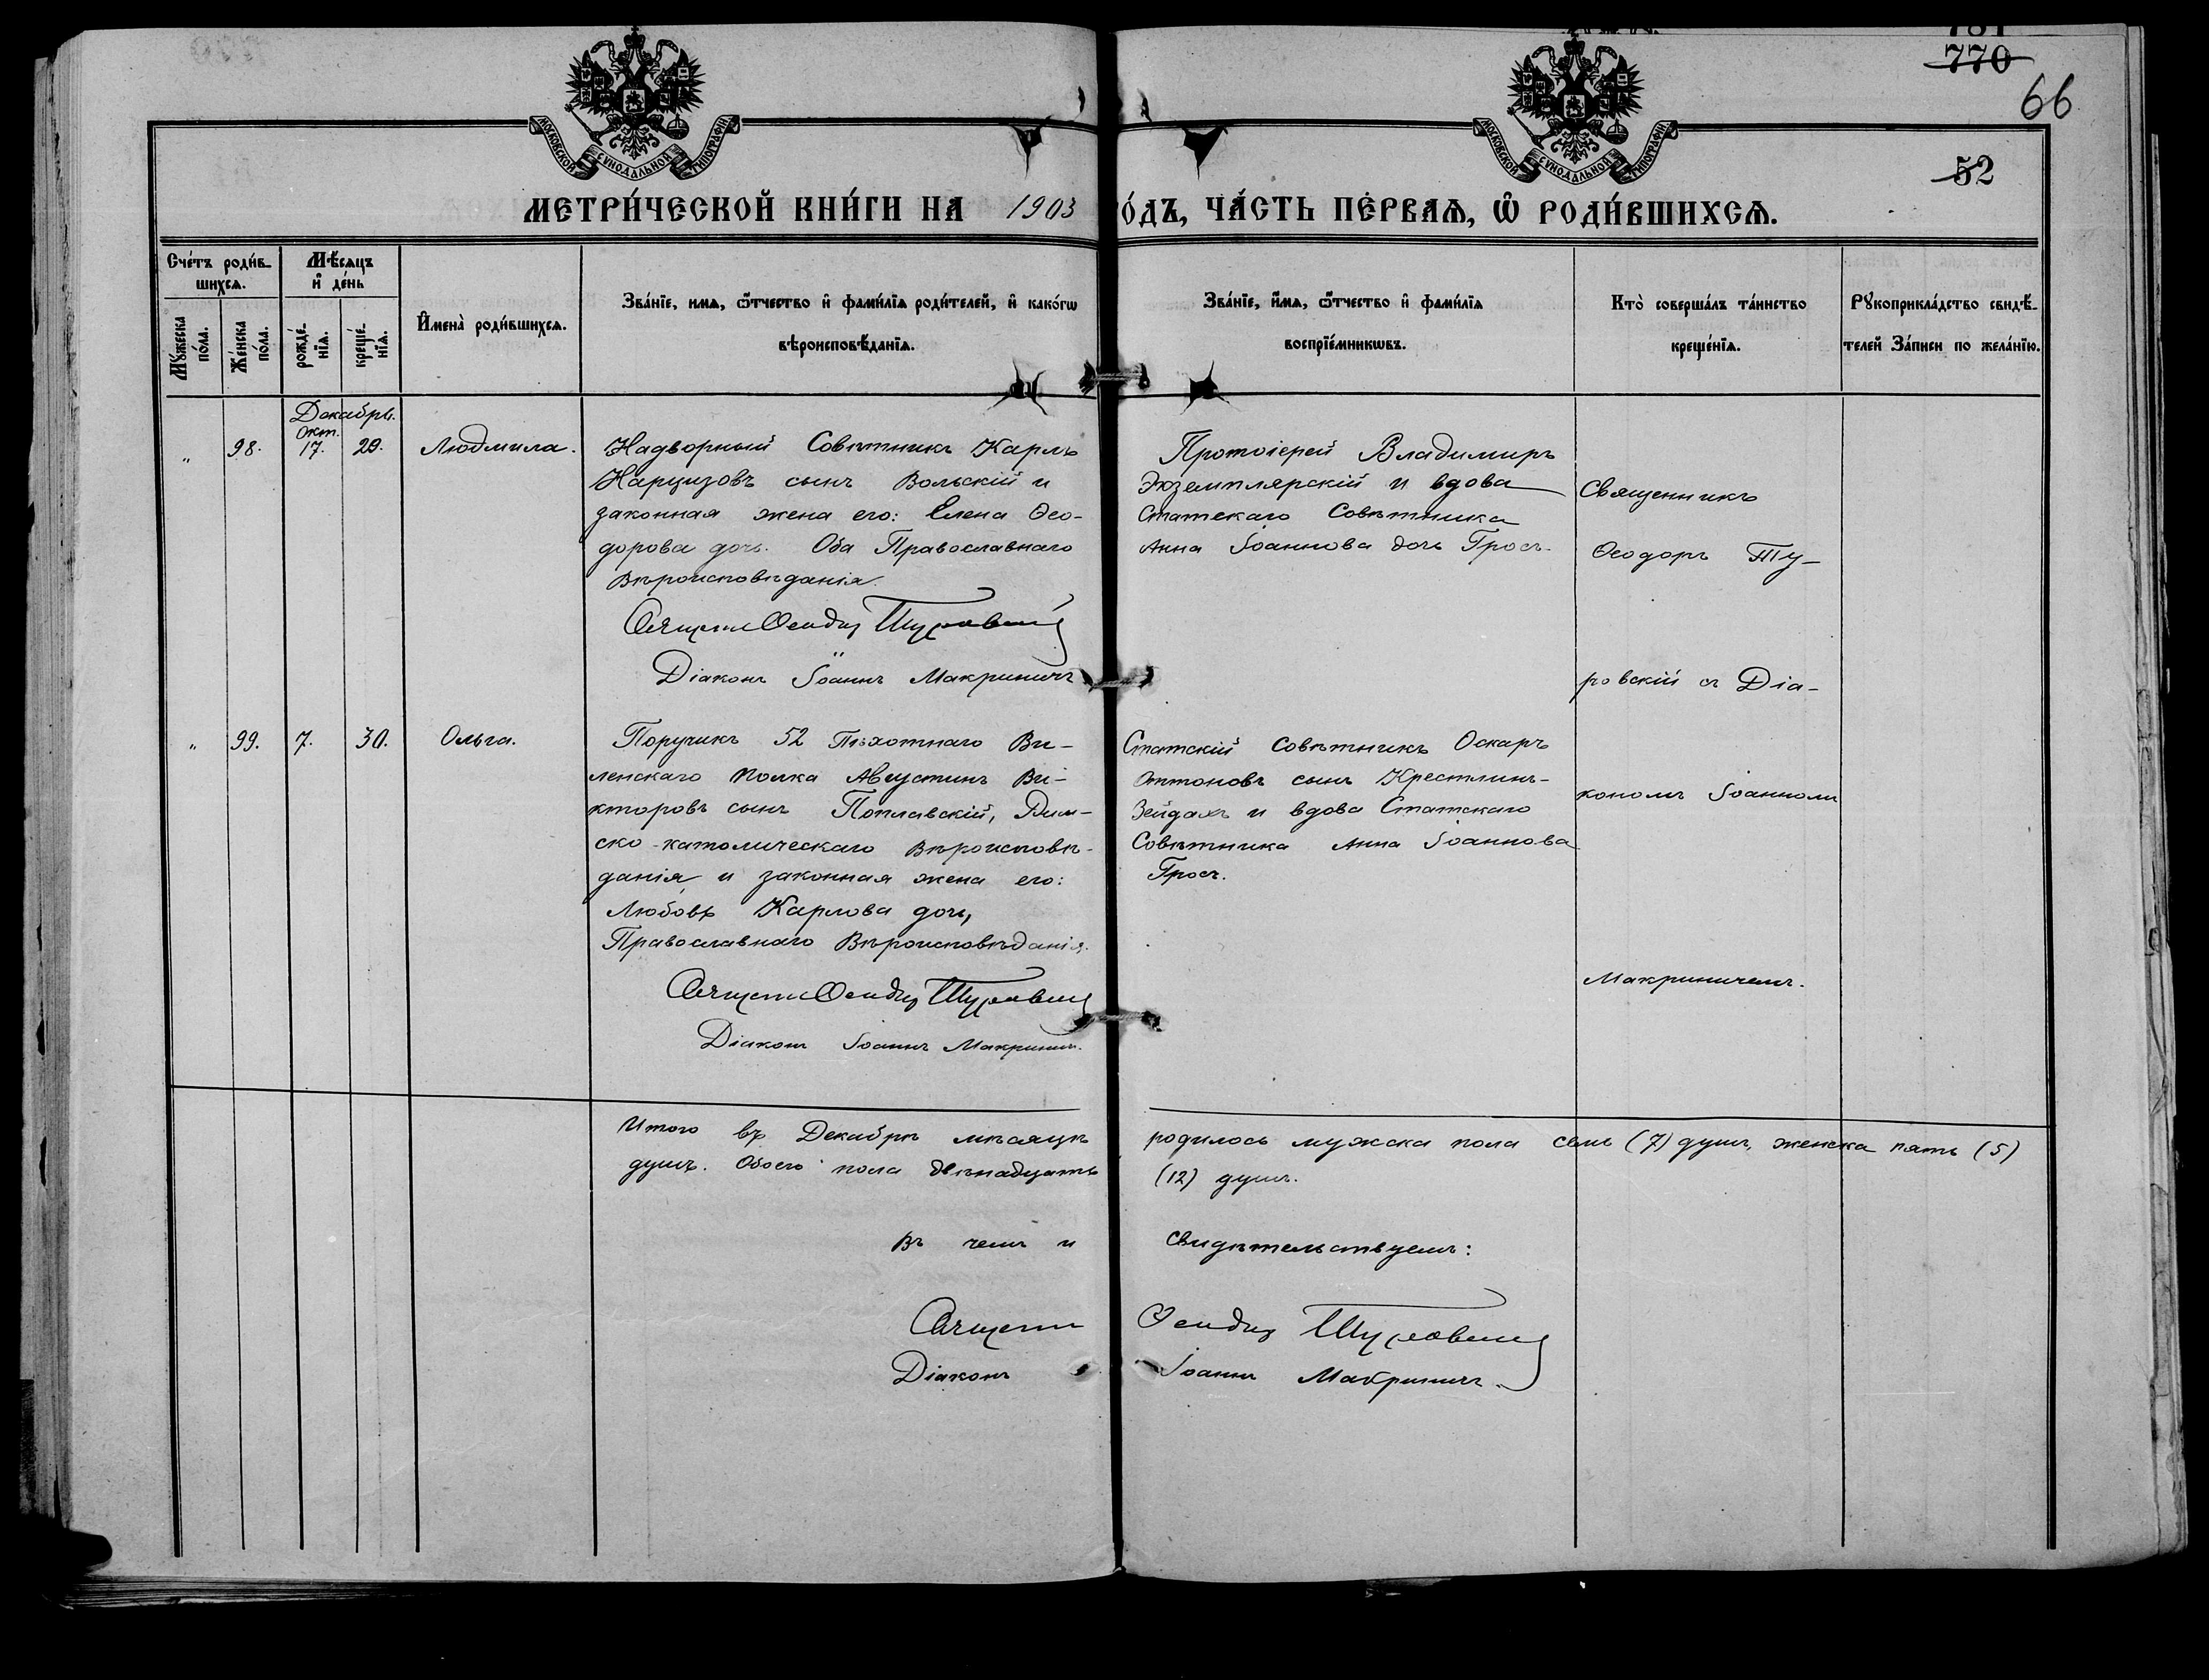 781
770
66
52
МОСКОВСКОЙ СѴНОДАЛЬНОЙ ТИПОГРАФІИ
МОСКОВСКОЙ СѴНОДАЛЬНОЙ ТИПОГРАФІИ
МЕТРИ́ЧЕСКОЙ КНИ́ГИ НА 1903 ГО́ДЪ, ЧА́СТЬ ПЕ́РВАѦ, Ѡ҆ РОДИ́ВШИХСѦ.
Сче́тъ роди́в-
шихсѧ.
Мꙋ́жеска по́ла.
Же́нска по́ла.
Мѣ́сѧцъ
и҆ де́нь
рожде́-нїѧ.
креще́-нїѧ.
И҆мена̀ роди́вшихсѧ.
Зва́нїе, имѧ, ѻ҆́тчество и҆ фами́лїѧ роди́телей, и҆ како́гѡ
вѣроисповѣ́данїѧ.
Зва́нїе, и҆́мѧ, ѻ҆́тчество и҆ фами́лїѧ
воспрїе́мникѡвъ.
Кто̀ соверша́лъ та́инство
креще́нїѧ.
Рꙋкоприкла́дство свидѣ́-
телей За́писи по жела́нїю.
Декабрь.
Окт.
„ 98. 17. 29. Людмила.
Надворный Совѣтникъ Карлъ
Нарцизовъ сынъ Вольскій и
законная жена его: Елена Ѳео-
дорова дочь. Оба Православнаго
Вѣроисповѣданія.
Діаконъ Іоаннъ Макриничъ
Протоіерей Владимиръ
Экземплярскій и вдова
Статскаго Совѣтника
Анна Іоаннова дочь Гросъ.
Священникъ
Ѳеодоръ Ту-
ровскій съ Діа-
кономъ Іоанномъ
Макриничемъ.
„ 99. 7. 30. Ольга.
Поручикъ 52 Пѣхотнаго Ви-
ленскаго Полка Августинъ Ви-
кторовъ сынъ Поплавскій, Рим-
ско-католическаго Вѣроисповѣ-
данія и законная жена его:
Любовь Карлова дочь,
Православнаго Вѣроисповѣданія.
Діаконъ Іоаннъ Макриничъ.
Статскій Совѣтникъ Оскаръ
Оттоновъ сынъ Крестлинъ-
Зейдахъ и вдова Статскаго
Совѣтника Анна Іоаннова
Гросъ.
Итого въ Декабрѣ мѣсяцѣ родилось мужска пола семь (7) душъ, женска пять (5)
душъ. Обоего пола двѣнадцать (12) душъ.
Въ чемъ и свидѣтельствуемъ:
Діаконъ Іоаннъ Макриничъ.